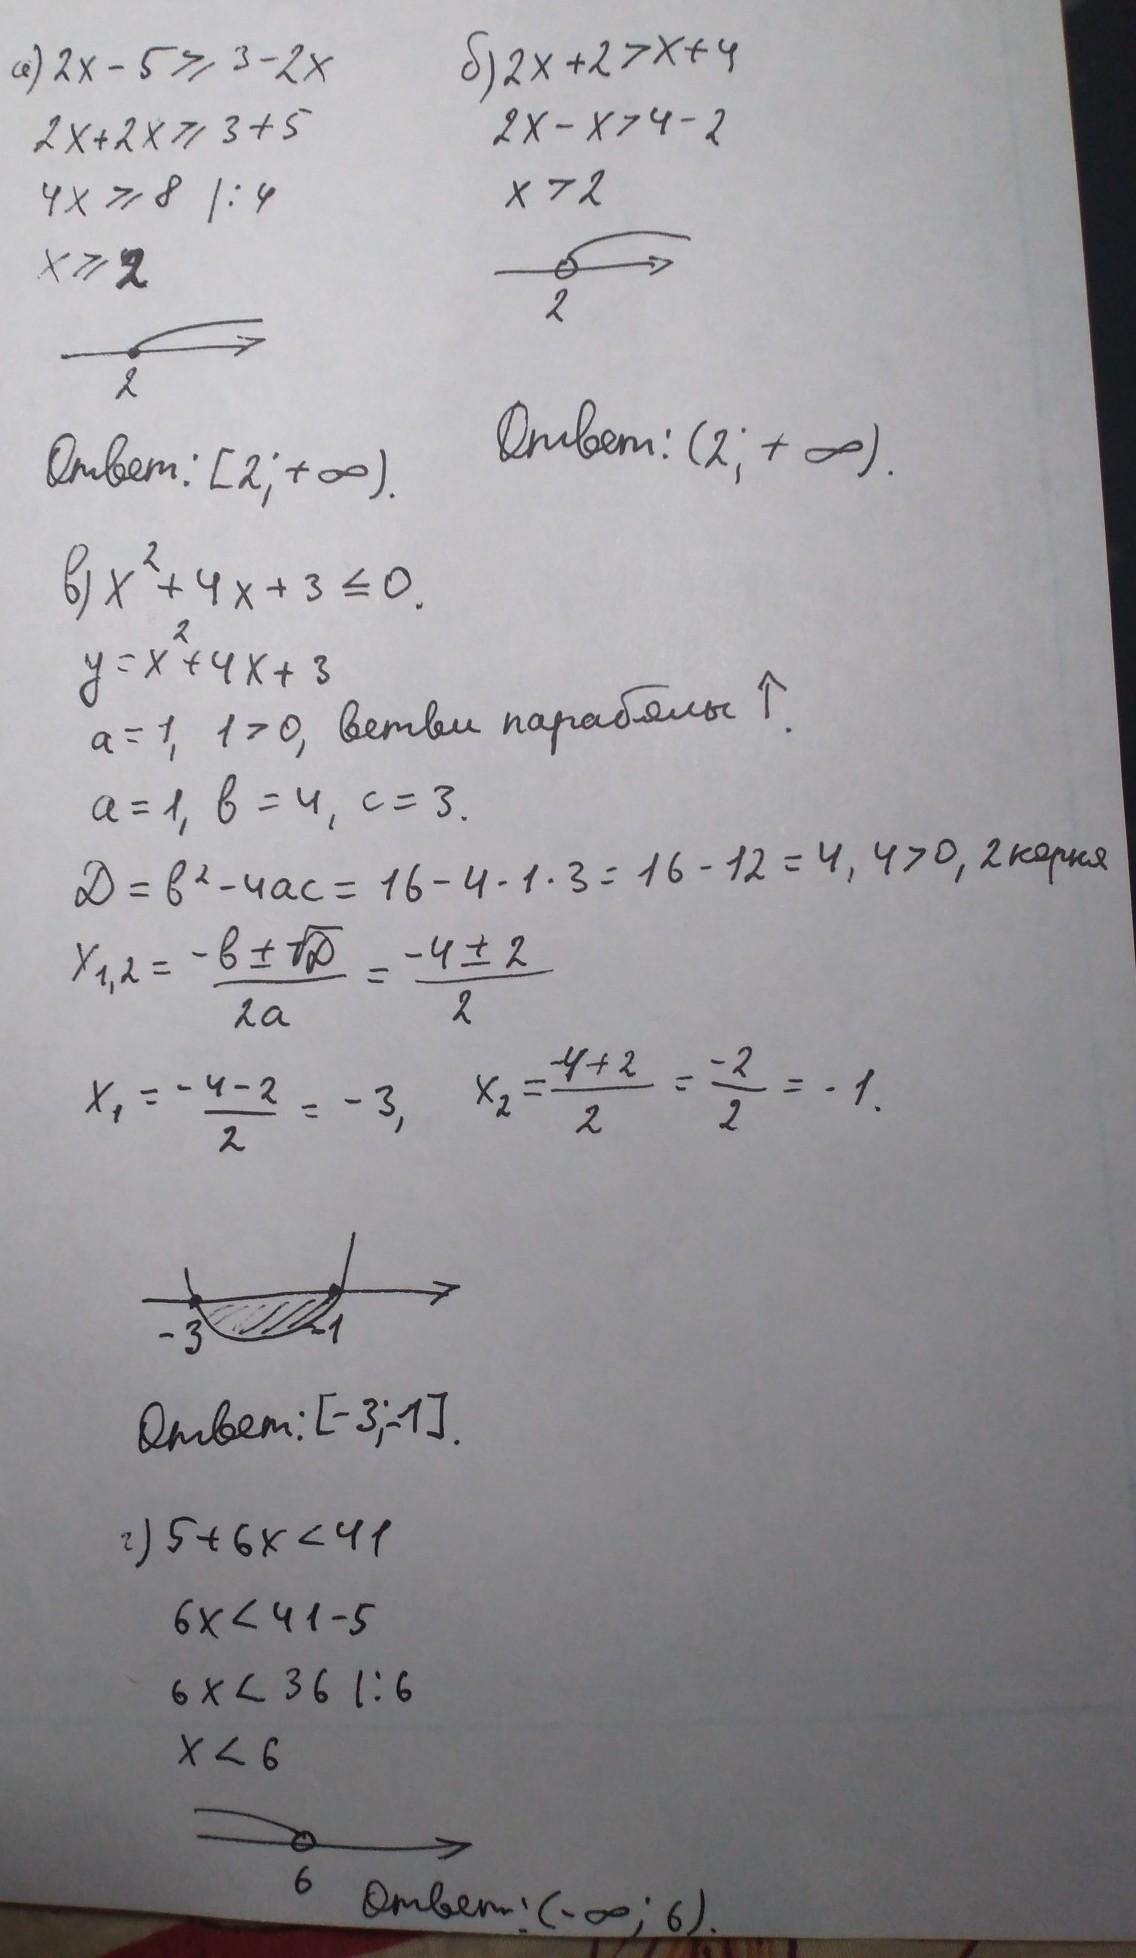 а) 2x - 5 ⩾ 3 - 2x
2x + 2x ⩾ 3 + 5
4x ⩾ 8 |: 4
x ⩾ 2
2
Ответ: [2; + ∞).
б) 2x + 2 > x + 4
2x - x > 4 - 2
x > 2
2
Ответ: (2; + ∞).
в) x² + 4x + 3 ≤ 0.
y = x² + 4x + 3
a = 1, 1 > 0, ветви параболы ↑.
a = 1, в = 4, c = 3.
Д = в² - 4ac = 16 - 4 · 1 · 3 = 16 - 12 = 4, 4 > 0, 2 корня
x₁,₂ = (-в ± √Д)/2a = (-4 ± 2)/2
x₁ = (-4 - 2)/2 = -3, x₂ = (-4 + 2)/2 = -2/2 = -1.
-3 -1
Ответ: [-3; -1].
г) 5 + 6x < 41
6x < 41 - 5
6x < 36 |: 6
x < 6
6
Ответ: (-∞; 6).